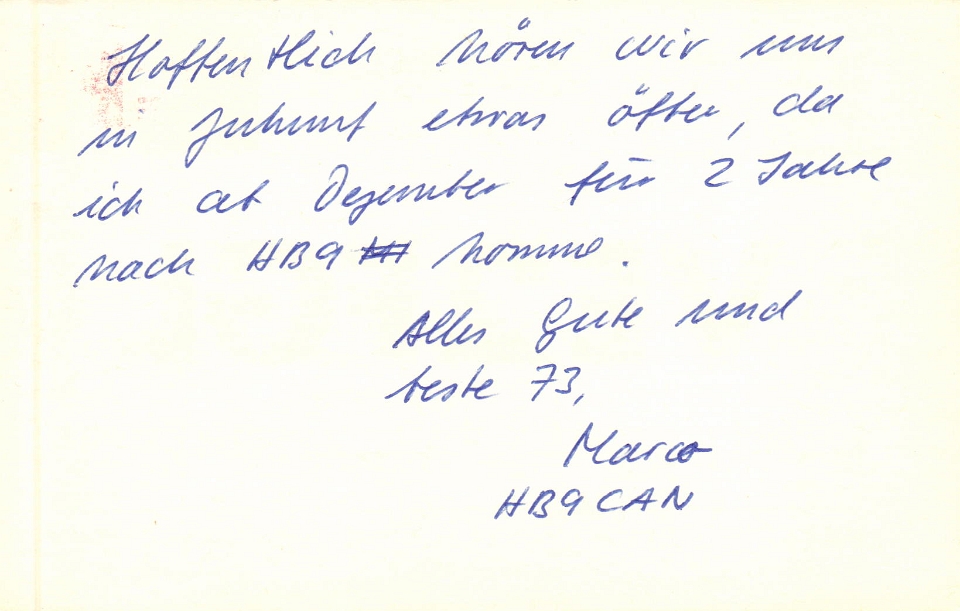 Hoffentlich hören wir uns
in Zukunft etwas öfter, da
ich ab Dezember für 2 Jahre
nach HB9 komme.
Alles Gute und
beste 73,
Marco
HB9CAN